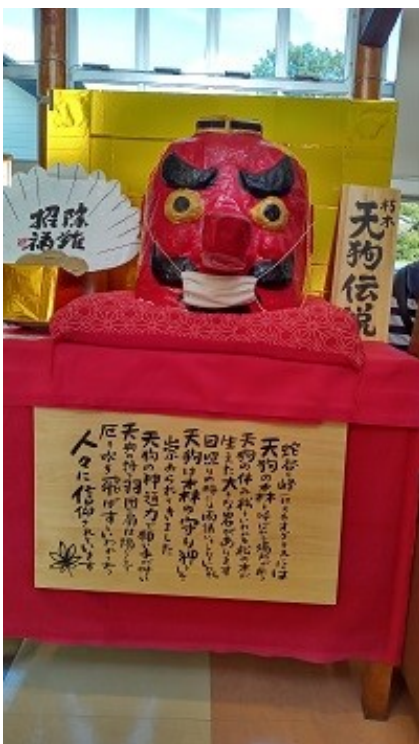 除難
招福
朽木
天狗伝説
蛇谷ヶ峰 には
天狗の森と呼ばれる場所があり
天狗の休み松といわれる松の木が
生えた大きな岩があります
日照りの時は雨乞いをしたり
天狗は森の守り神として
崇められてきました
天狗の神通力で
天狗の持つ羽団扇は
厄を吹き飛ばすといわれており
人々に信仰されています